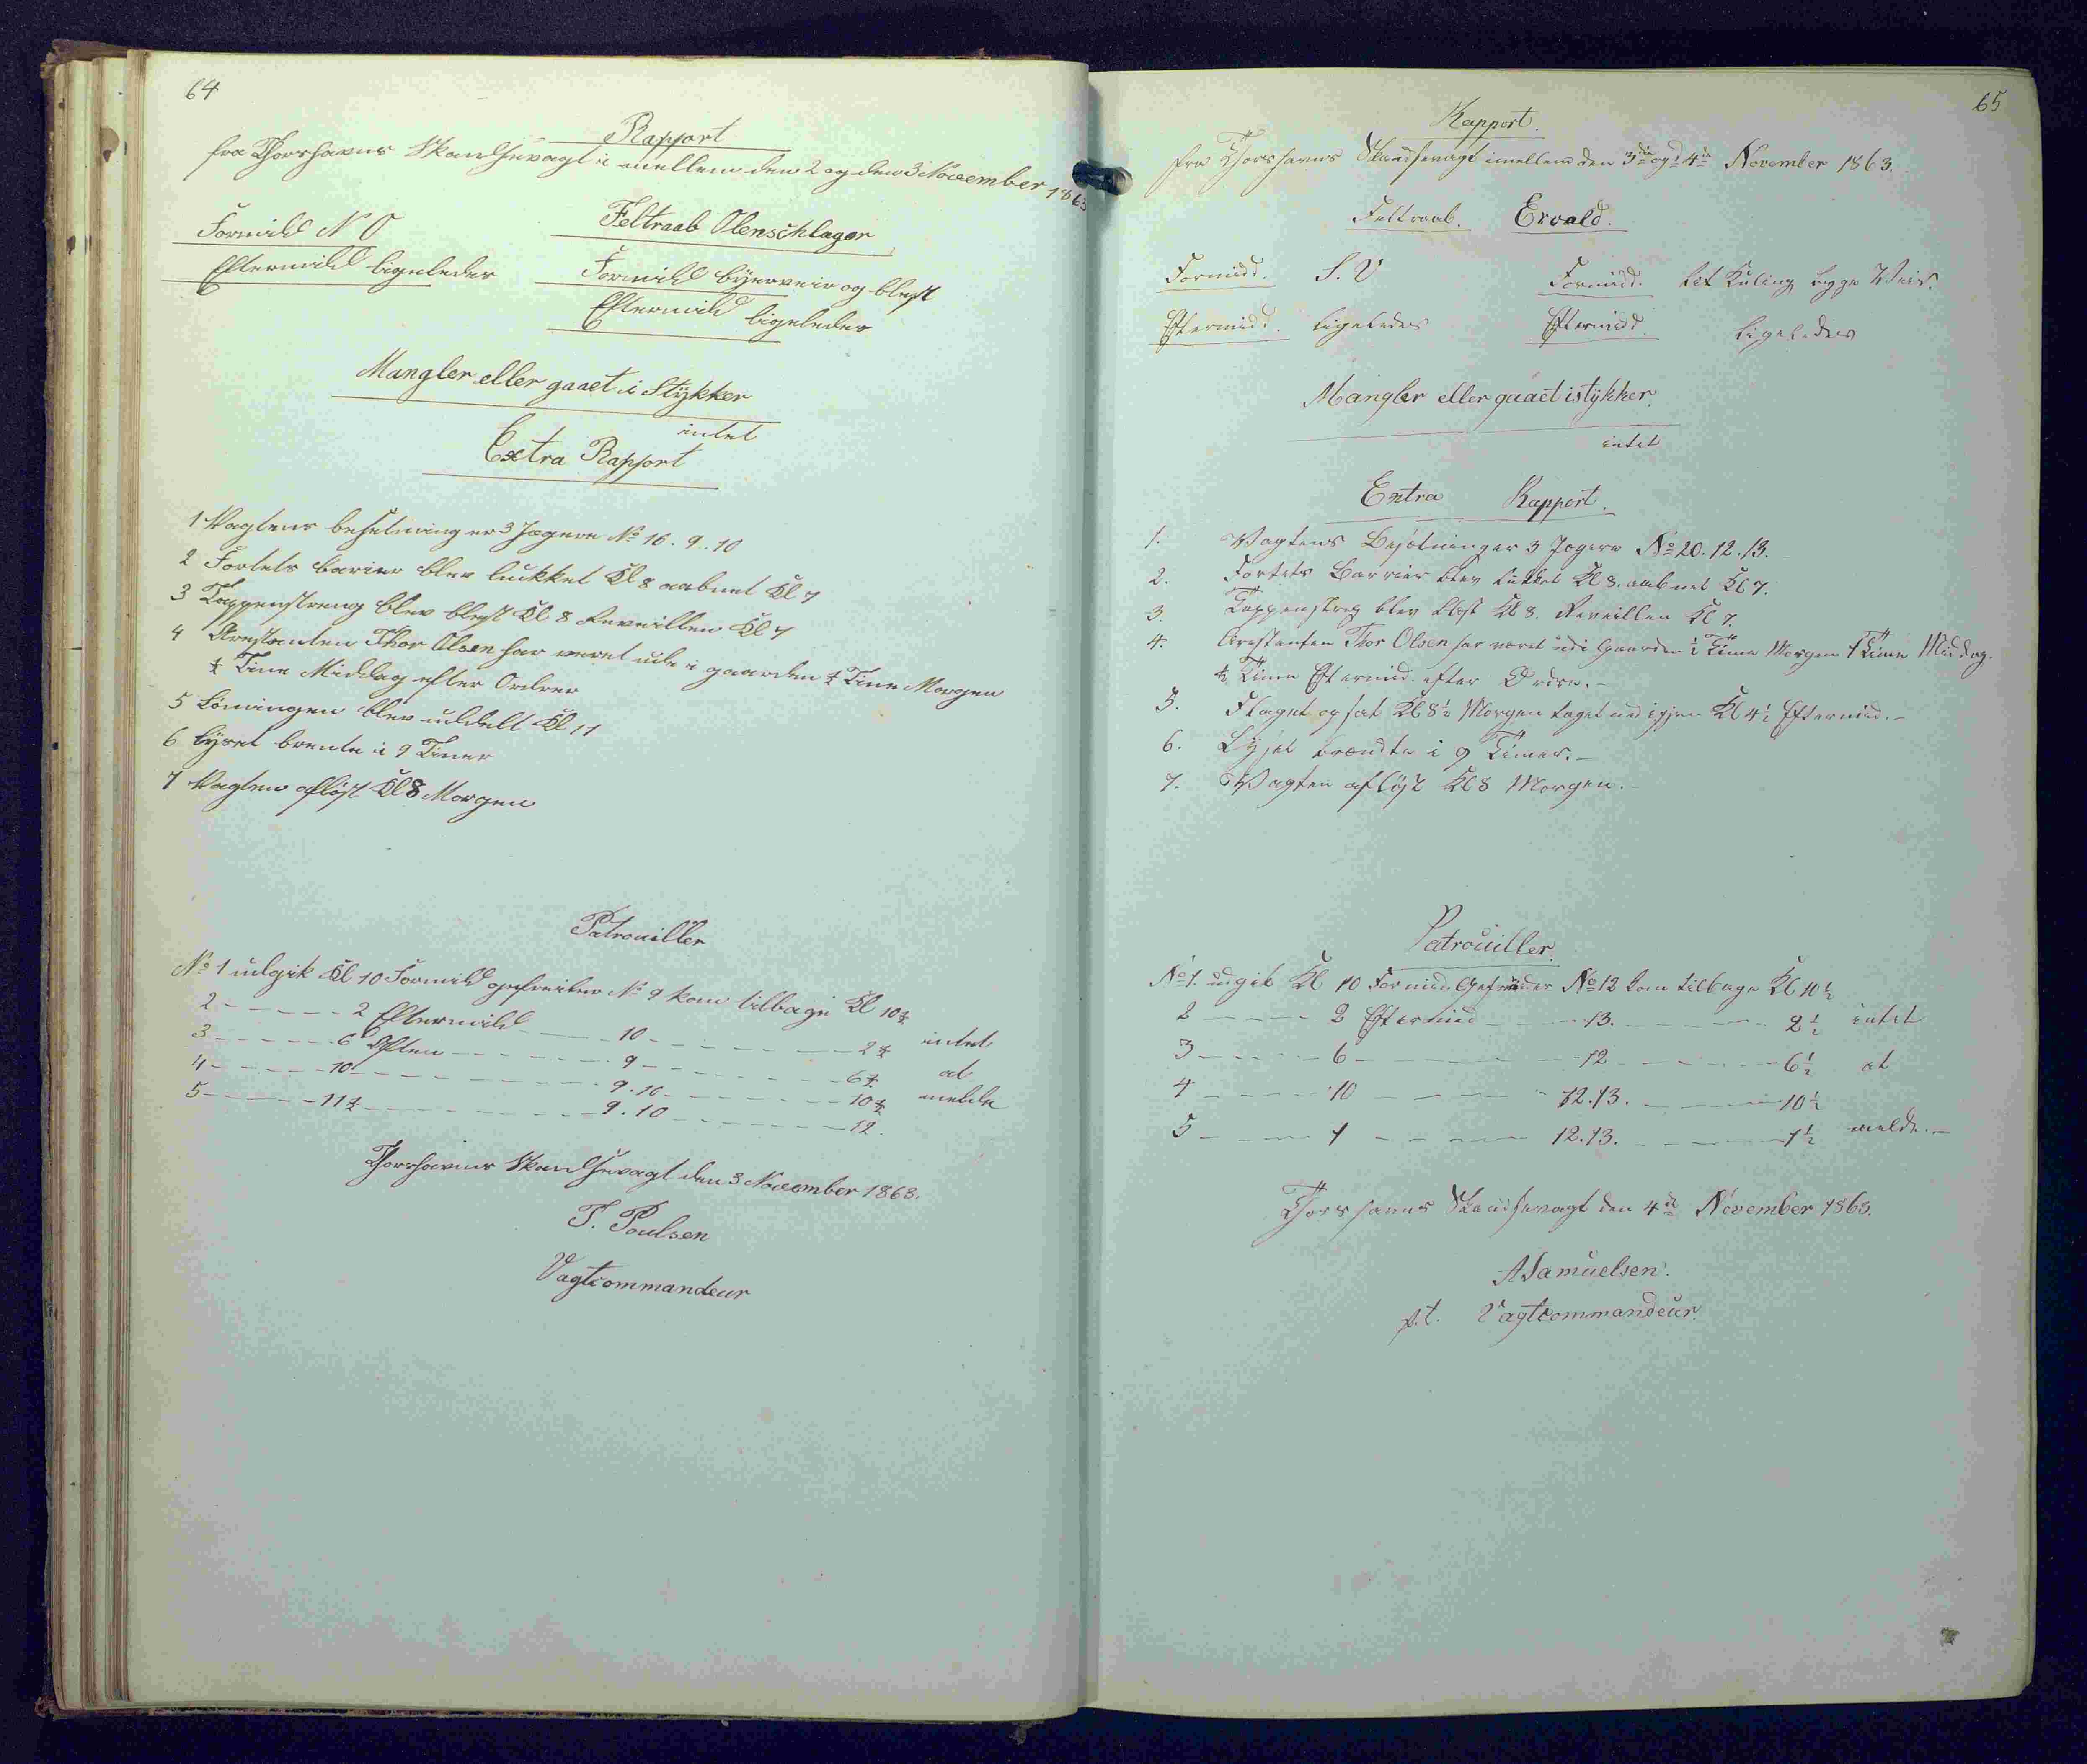 64
Rapport
fra Thorshavns Skandsevagt i mellem den 2 og den 3 November 1863
Feltraab Olenschlager
Formidd N O
Formidd byerveir og blest
Eftermidd ligeledes
Eftermidd ligeledes
Mangler eller gaaet i Stykker
intet
Extra Rapport
1 Vagtens besetning er 3 Jægere No 16. 9. 10
2 Fortets barier blev lukket Kl 8 aabnet Kl 7
3 Tappenstreng blev blest Kl 8 Reveillen Kl 7
4 Arrestanten Thor Olsen har veret ude i gaarden ½ Time Morgen
½ Time Middag efter Ordrer
5 Lønningen blev uddelt Kl 11
6 Lyset brente i 9 Timer
7 Vagten afløst Kl 8 Morgen
Patrouiller
No 1 udgik Kl 10 Formidd gefreiter No 9 kom tilbage Kl 10½
2 - - - - - 2 Eftermidd - - - 10 - - - - - - 2½ intet
3 - - - - - 6 Aften - - - - - 9 - - - - - - 6½ at
4 - - - - - 10 - - - - - - - 9. 10 - - - - - 10½ melde
5 - - - - - 11½ - - - - - - 9. 10 - - - - - 12.
Thorshavns Skandsevagt den 3 November 1863.
T. Poulsen
Vagtcommandeur
65
Rapport.
fra Thorshavns Skandsevagt imellem den 3die og 4de November 1863.
Feltraab. Ervald.
Formidd. S. V Formidd. let Kuling bygge Veir.
Eftermidd. ligeledes Eftermidd. ligeledes
Mangler eller gaaet istykker.
intet
Extra Rapport.
1. Vagtens Besætning er 3 Jægere No 20. 12. 13.
2. Fortets Barrier blev lukket Kl 8. aabnet Kl 7.
3. Tappenstreg blev blest Kl 8. Reveillen Kl 7.
4. Arrestanten Thor Olsen har været udi Gaarden ½ Time Morgen 1 Time Middag.
½ Time Eftermid. efter Ordre.-
5. Flaget opsat Kl 8½ Morgen taget ned igjen Kl 4½ Eftermid.-
6. Lyset brændte i 9 Timer.-
7. Vagten afløst Kl 8 Morgen.-
Patrouiller.
No 1. udgik Kl 10 Formid. Gefreider No 12 kom tilbage Kl 10½
2 - - - - 2 Eftermid - - - 13. - - - - - 2½ intet
3 - - - - 6 - - - - - - - 12 - - - - - 6½ at
4 - - - - 10 - - - - - - 12. 13. - - - - 10½
5 - - - - 1 - - - - - - 12. 13. - - - - 1½ melde.-
Thorshavns Skandsevagt den 4de November 1863.
A Samuelsen.
p.t. Vagtcommandeur.